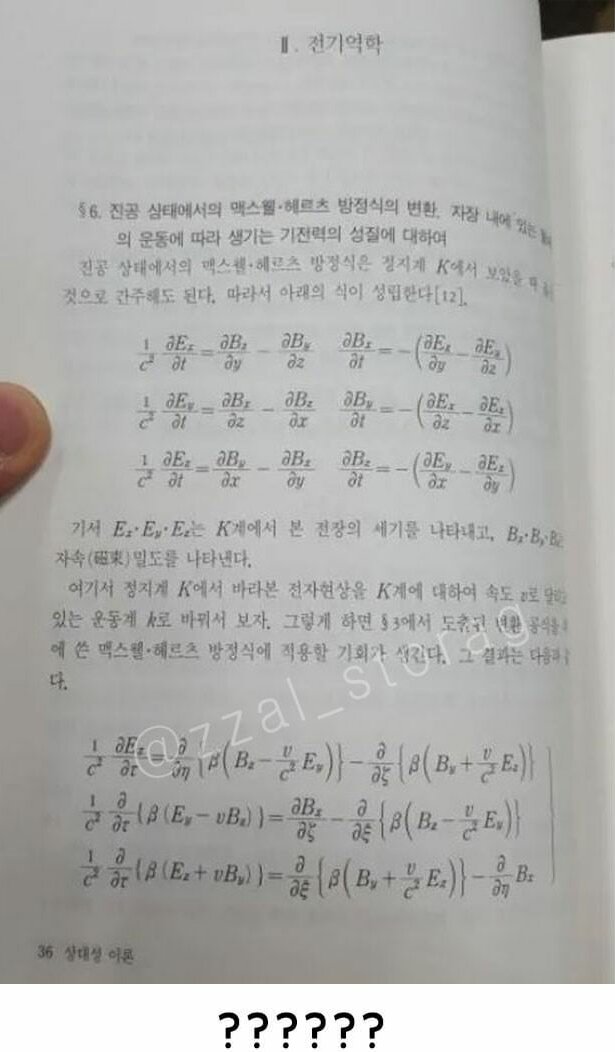 Ⅱ. 전기역학
§6. 진공 상태에서의 맥스웰·헤르츠 방정식의 변환. 자장 내에 있는
의 운동에 따라 생기는 기전력의 성질에 대하여
진공 상태에서의 맥스웰·헤르츠 방정식은 정지계 K에서 보았을 때
것으로 간주해도 된다. 따라서 아래의 식이 성립한다[12].
1/c² ∂Ex/∂t = ∂Bz/∂y − ∂By/∂z   ∂Bx/∂t = −(∂Ez/∂y − ∂Ey/∂z)
1/c² ∂Ey/∂t = ∂Bx/∂z − ∂Bz/∂x   ∂By/∂t = −(∂Ex/∂z − ∂Ez/∂x)
1/c² ∂Ez/∂t = ∂By/∂x − ∂Bx/∂y   ∂Bz/∂t = −(∂Ey/∂x − ∂Ex/∂y)
기서 Ex·Ey·Ez는 K계에서 본 전장의 세기를 나타내고, Bx·By·Bz는
자속(磁束)밀도를 나타낸다.
여기서 정지계 K에서 바라본 전자현상을 K계에 대하여 속도 v로
있는 운동계 k로 바꿔서 보자. 그렇게 하면 §3에서 도출된 변환 공식을
에 쓴 맥스웰·헤르츠 방정식에 적용할 기회가 생긴다. 그 결과는 다음과
다.
1/c² ∂Ex/∂τ = ∂/∂η{β(Bz − v/c² Ey)} − ∂/∂ζ{β(By + v/c² Ez)}
1/c² ∂/∂τ{β(Ey − vBz)} = ∂Bx/∂ζ − ∂/∂ξ{β(Bz − v/c² Ey)}
1/c² ∂/∂τ{β(Ez + vBy)} = ∂/∂ξ{β(By + v/c² Ez)} − ∂/∂η Bx
@zzal_storag
36 상대성 이론
??????